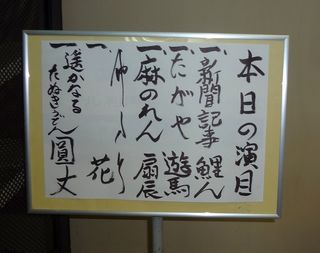 本日の演目
一、新聞記事 鯉ん
一、たがや 遊馬
一、麻のれん 扇辰
一、 花
一、遥かなる
たぬきうどん 圓丈